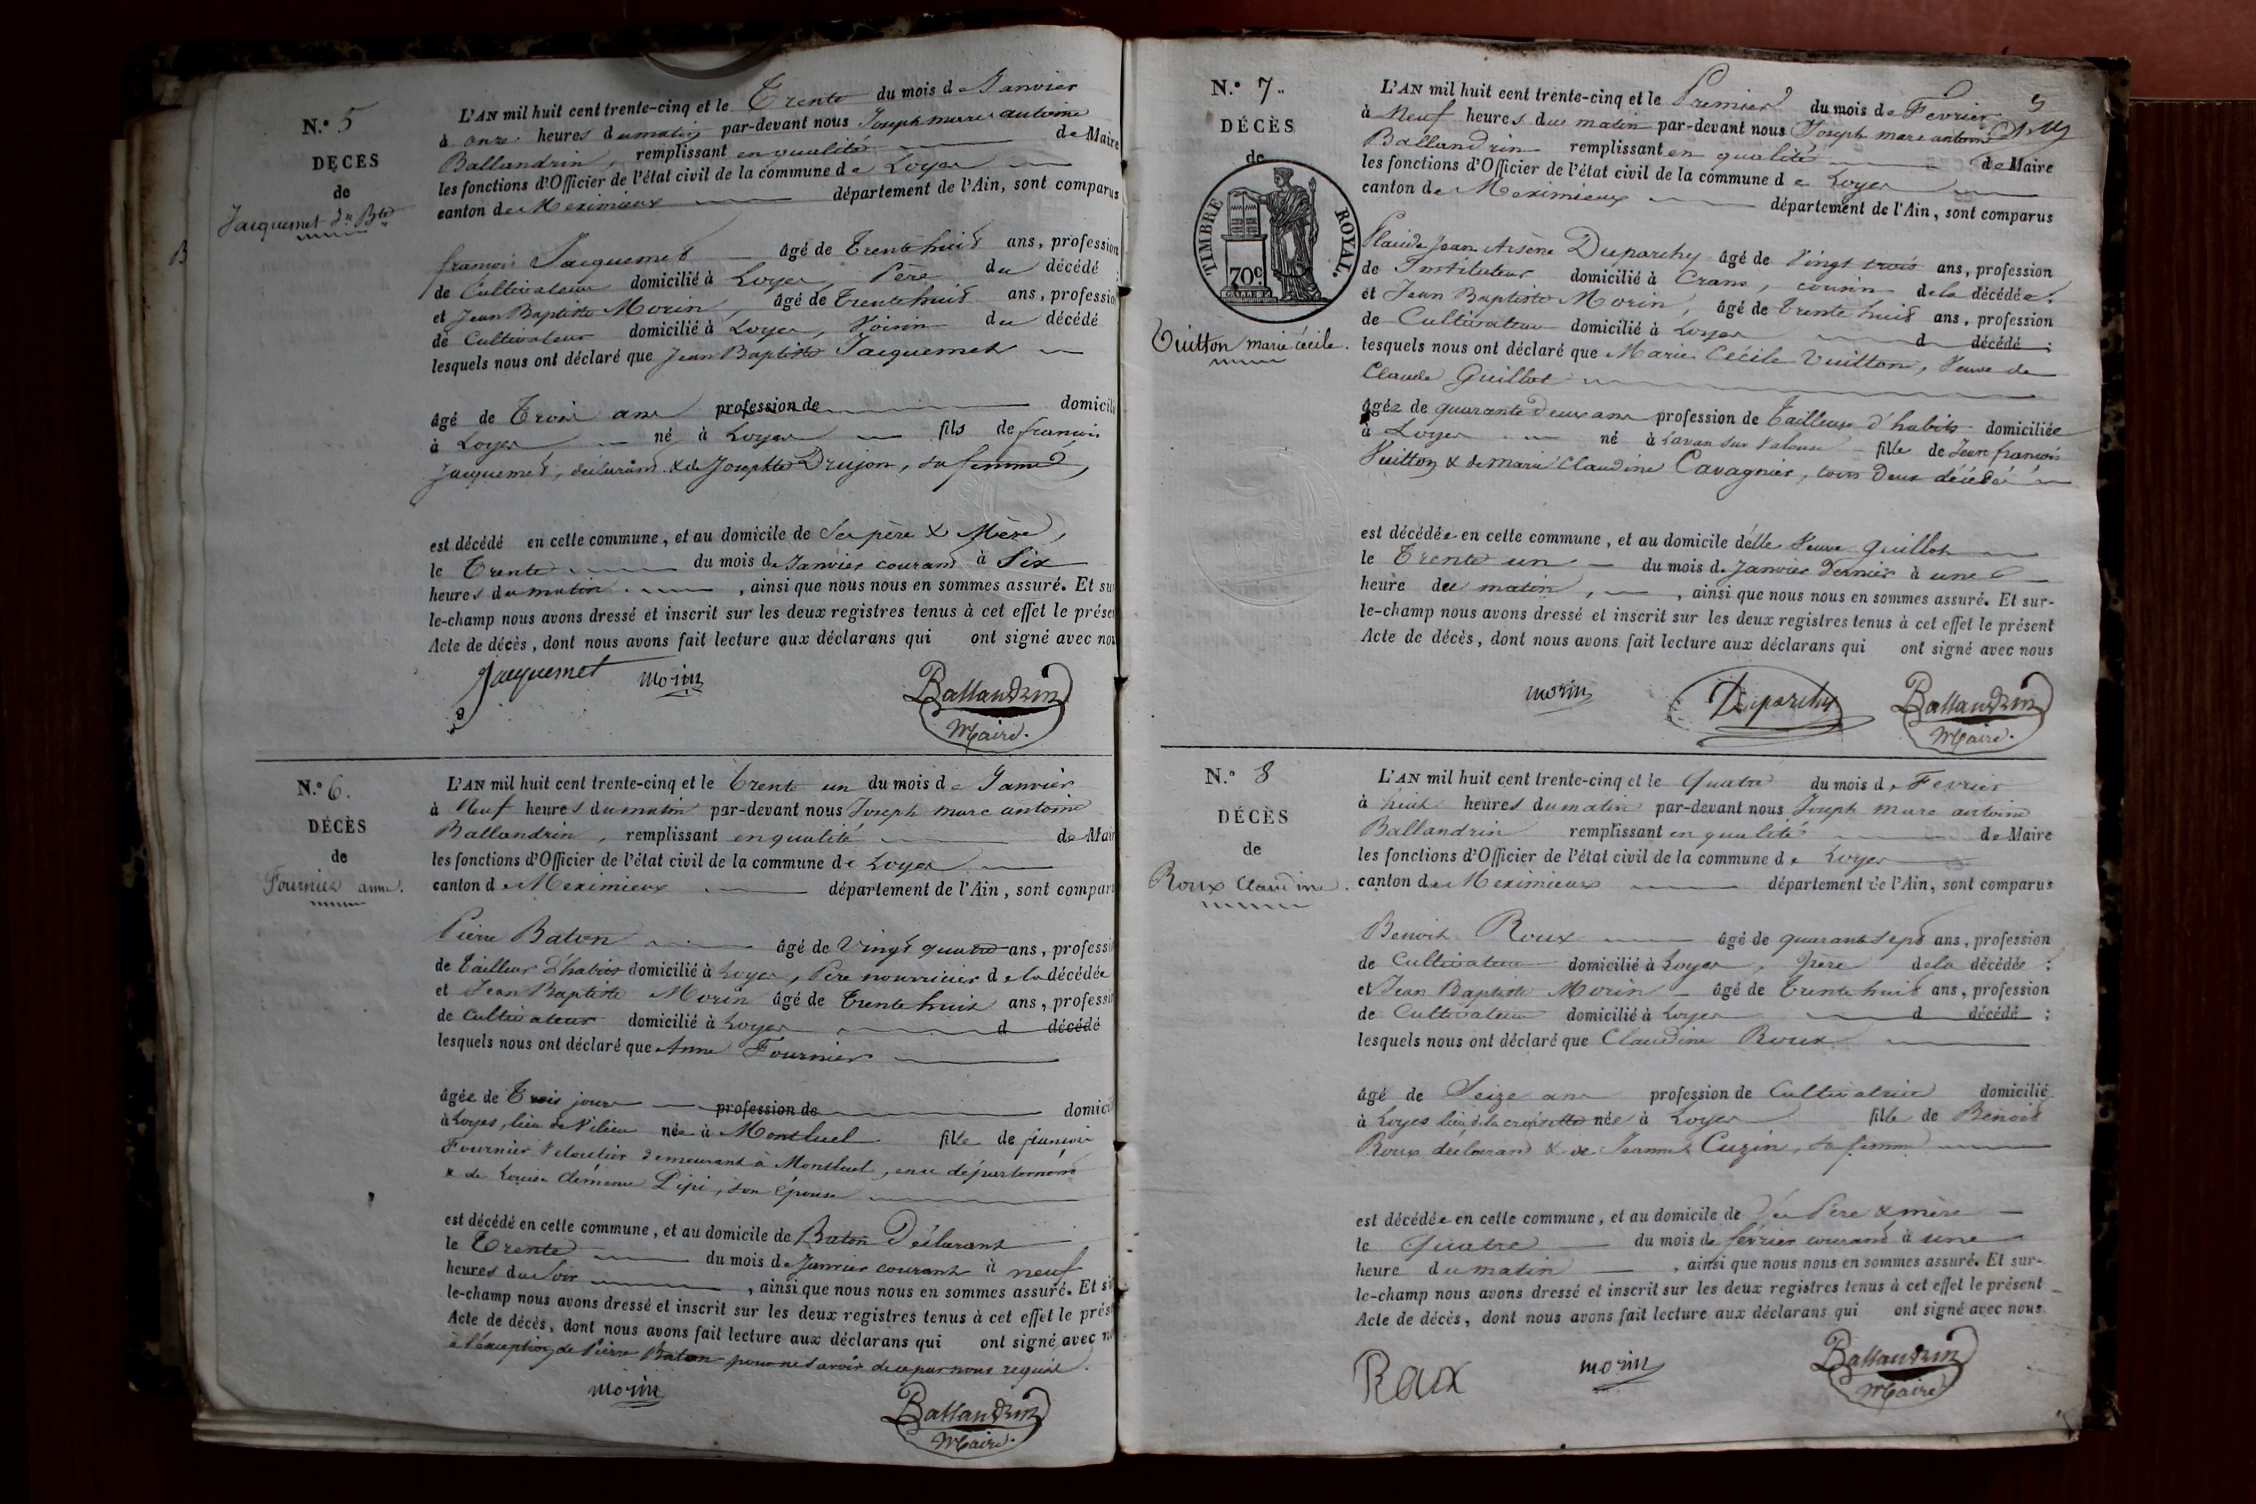 N.° 5
DÉCÈS
de
Jacquemet Jn Bte
L'AN mil huit cent trente-cinq et le Trente du mois de Janvier
à onze heures du matin par-devant nous Joseph marc antoine
Ballandrin, remplissant en qualité de Maire
les fonctions d'Officier de l'état civil de la commune de Loyes
canton de Meximieux département de l'Ain, sont comparus
françois Jacquemet âgé de Trente huit ans, profession
de Cultivateur domicilié à Loyes, Père du décédé
et Jean Baptiste Morin, âgé de Trente huit ans, profession
de Cultivateur domicilié à Loyes, Voisin du décédé
lesquels nous ont déclaré que Jean Baptiste Jacquemet
âgé de Trois ans profession de domicilié
à Loyes né à Loyes fils de françois
Jacquemet, déclarant & de Josephte Drujon, sa femme,
est décédé en cette commune, et au domicile de Ses père & Mère,
le Trente du mois de Janvier courant à Six
heures du matin, ainsi que nous nous en sommes assuré. Et sur
le-champ nous avons dressé et inscrit sur les deux registres tenus à cet effet le présent
Acte de décès, dont nous avons fait lecture aux déclarans qui ont signé avec nous
Jacquemet morin Ballandrin
Maire.
N.° 6.
DÉCÈS
de
Fournier anne.
L'AN mil huit cent trente-cinq et le Trente un du mois de Janvier
à Neuf heures du matin par-devant nous Joseph marc antoine
Ballandrin, remplissant en qualité de Maire
les fonctions d'Officier de l'état civil de la commune de Loyes
canton de Meximieux département de l'Ain, sont comparus
Pierre Baton âgé de Vingt quatre ans, profession
de Tailleur d'habits domicilié à Loyes, Père nourricier de la décédée
et Jean Baptiste Morin âgé de Trente huit ans, profession
de Cultivateur domicilié à Loyes d décédé
lesquels nous ont déclaré que Anne Fournier
âgée de Trois jours profession de domicilié
à Loyes, lieu de Vilieu née à Montluel fille de françois
Fournier demeurant à Montluel, en ce département
& de Louise Clémence Pipi, son épouse
est décédé en cette commune, et au domicile de Baton Déclarant
le Trente du mois de Janvier courant à neuf
heures du Soir, ainsi que nous nous en sommes assuré. Et sur
le-champ nous avons dressé et inscrit sur les deux registres tenus à cet effet le présent
Acte de décès, dont nous avons fait lecture aux déclarans qui ont signé avec nous
à l'exception de Pierre Baton pour ne savoir de ce par nous requis.
morin Ballandrin
Maire.
N.° 7.
DÉCÈS
de
TIMBRE ROYAL.
70c
Vuitton marie cécile.
5
L'AN mil huit cent trente-cinq et le Premier du mois de Fevrier
à Neuf heures du matin par-devant nous Joseph marc antoine
Ballandrin remplissant en qualité de Maire
les fonctions d'Officier de l'état civil de la commune de Loyes
canton de Meximieux département de l'Ain, sont comparus
Claude Jean Arsène Duparchy âgé de Vingt trois ans, profession
de Instituteur domicilié à Crans, cousin de la décédée;
et Jean Baptiste Morin, âgé de Trente huit ans, profession
de Cultivateur domicilié à Loyes d décédé;
lesquels nous ont déclaré que Marie Cécile Vuitton, Veuve de
Claude Guillot
âgée de quarante deux ans profession de Tailleuse d'habits domiciliée
à Loyes né à Lavan sur Valouse fille de Jean françois
Vuitton & de Marie Claudine Cavagnier, tous deux décédés
est décédée en cette commune, et au domicile d'elle Veuve Guillot
le Trente un du mois de Janvier dernier à une
heure du matin, ainsi que nous nous en sommes assuré. Et sur-
le-champ nous avons dressé et inscrit sur les deux registres tenus à cet effet le présent
Acte de décès, dont nous avons fait lecture aux déclarans qui ont signé avec nous
morin Duparchy Ballandrin
Maire.
N.° 8
DÉCÈS
de
Roux Claudine.
L'AN mil huit cent trente-cinq et le Quatre du mois de Fevrier
à huit heures du matin par-devant nous Joseph marc antoine
Ballandrin remplissant en qualité de Maire
les fonctions d'Officier de l'état civil de la commune de Loyes
canton de Meximieux département de l'Ain, sont comparus
Benoit Roux âgé de quarante sept ans, profession
de Cultivateur domicilié à Loyes, Père de la décédée;
et Jean Baptiste Morin âgé de Trente huit ans, profession
de Cultivateur domicilié à Loyes d décédé;
lesquels nous ont déclaré que Claudine Roux
âgé de Seize ans profession de Cultivatrice domicilié
à Loyes lieu de la croisette née à Loyes fille de Benoit
Roux déclarant & de Jeanne Cuzin, sa femme
est décédée en cette commune, et au domicile de Ses Père & mère
le Quatre du mois de février courant à une
heure du matin, ainsi que nous nous en sommes assuré. Et sur-
le-champ nous avons dressé et inscrit sur les deux registres tenus à cet effet le présent
Acte de décès, dont nous avons fait lecture aux déclarans qui ont signé avec nous
Roux morin Ballandrin
Maire